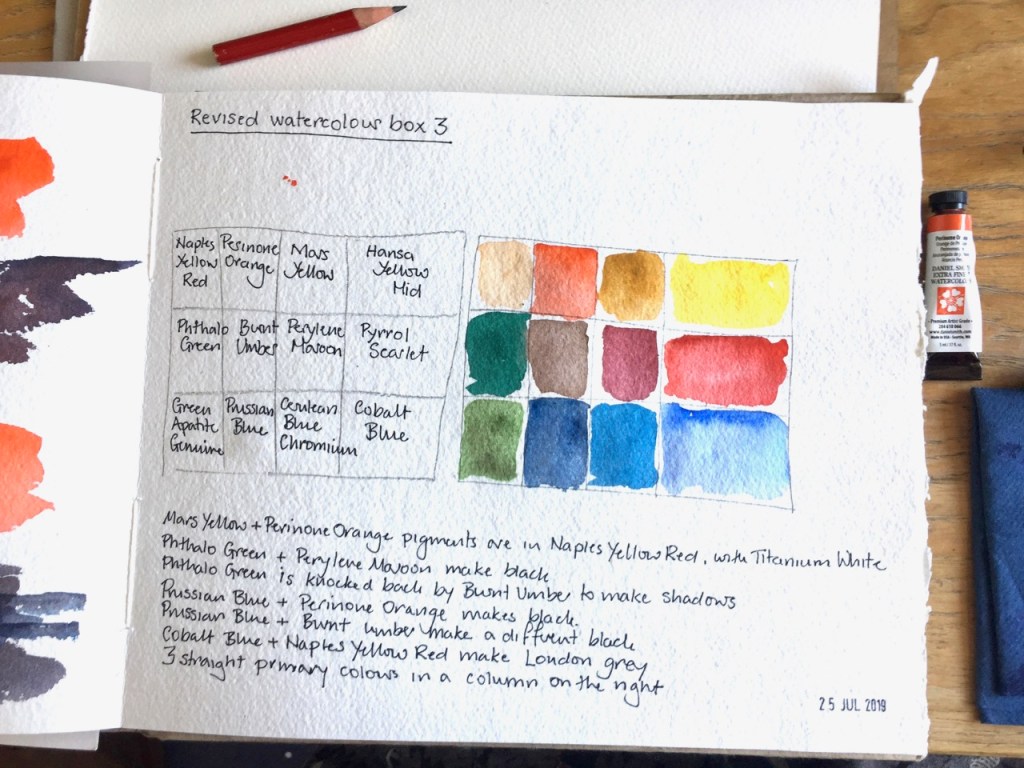 Revised watercolour box 3
Naples Yellow Red
Perinone Orange
Mars Yellow
Hansa Yellow Mid
Phthalo Green
Burnt Umber
Perylene Maroon
Pyrrol Scarlet
Green Apatite Genuine
Prussian Blue
Cerulean Blue Chromium
Cobalt Blue
Mars Yellow + Perinone Orange pigments are in Naples Yellow Red, with Titanium White
Phthalo Green + Perylene Maroon make black
Phthalo Green is knocked back by Burnt Umber to make shadows
Prussian Blue + Perinone Orange makes black.
Prussian Blue + Burnt umber make a diffrent black
Cobalt Blue + Naples Yellow Red make London grey
3 straight primary colours in a column on the right
25 JUL 2019
Perinone Orange
DANIEL SMITH
EXTRA FINE
WATERCOLOR